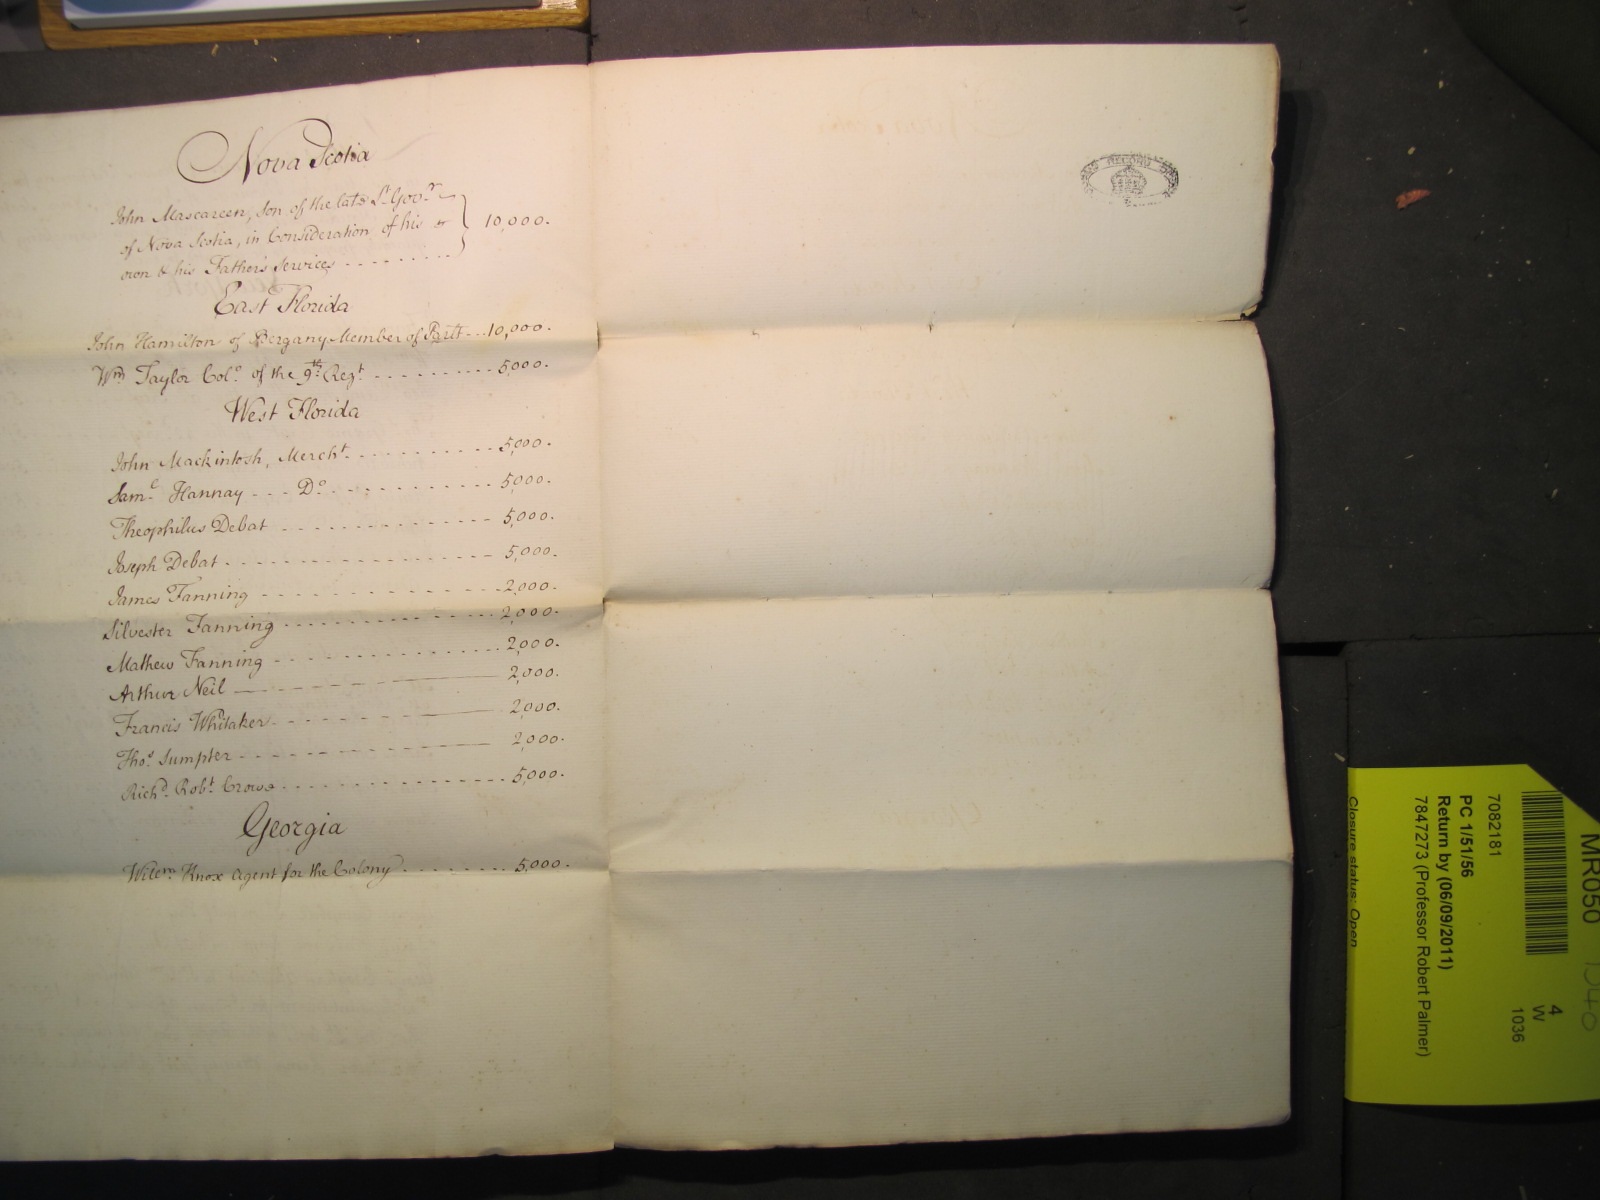 Nova Scotia
John Mascareen, Son of the late Lt. Govr.
of Nova Scotia, in Consideration of his
own & his Father's Services - - - - - - - - - 10,000.
East Florida
John Hamilton of Bergany Member of Parlt - - - 10,000.
Wm. Taylor Colo. of the 9th. Regt. - - - - - - - - - - 5,000.
West Florida
John Mackintosh, Mercht. - - - - - - - - - - 5,000.
Saml. Hannay - - - Do. - - - - - - - - - - - - 5,000.
Theophilus Debat - - - - - - - - - - - - - - 5,000.
Joseph Debat - - - - - - - - - - - - - - - - - 5,000.
James Fanning - - - - - - - - - - - - - - - 2,000.
Silvester Fanning - - - - - - - - - - - - - - 2,000.
Mathew Fanning - - - - - - - - - - - - - - 2,000.
Arthur Neil - - - - - - - - - 2,000.
Francis Whitaker - - - - - - - - - 2,000.
Thos. Sumpter - - - - - - - - - - 2,000.
Richd. Robt. Crowe - - - - - - - - - - - - - 5,000.
Georgia
Willm. Knox Agent for the Colony - - - - - - - - 5,000.
RECORD
MR050
1036
4
W
7082181
PC 1/51/56
Return by (06/09/2011)
7847273 (Professor Robert Palmer)
Closure status: Open